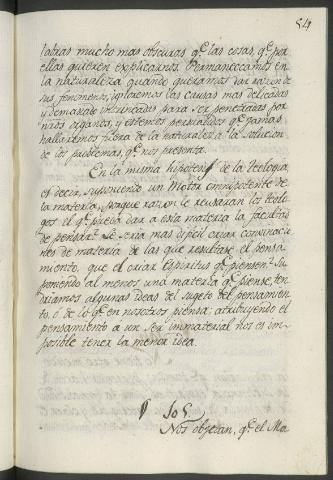 54
labras mucho mas obscuras q.e las cosas, q.e por
ellas quieren explicarnos. Permanezcamos en
la naturaleza quando queramos dar razon de
sus fenomenos, ignoremos las causas mas delicadas
y demasiado intrincadas para ser penetradas por
nros organos, y estemos persuadidos q.e jamas
hallaremos fuera de la naturaleza la solucion
de los problemas, q.e nos presenta.
En la misma hipotesi de la Teologia,
es decir, suponiendo un Motor omnipotente de
la materia, porque razon le reusaran los teolo-
gos el q.e pueda dar a esta materia la facultad
de pensar? Le seria mas dificil criar convinacio-
nes de materia de las que resultase el pensa-
miento, que el criar Espiritus q.e piensen? Su-
poniendo al menos una materia q.e piense, ten-
driamos algunas ideas del sugeto del pensamien-
to, ó de lo q.e en nosotros piensa; atribuyendo el
pensamiento a un Ser inmaterial nos es im-
posible tener la menor idea.
§ 105.
Nos objetan, q.e el Ma-